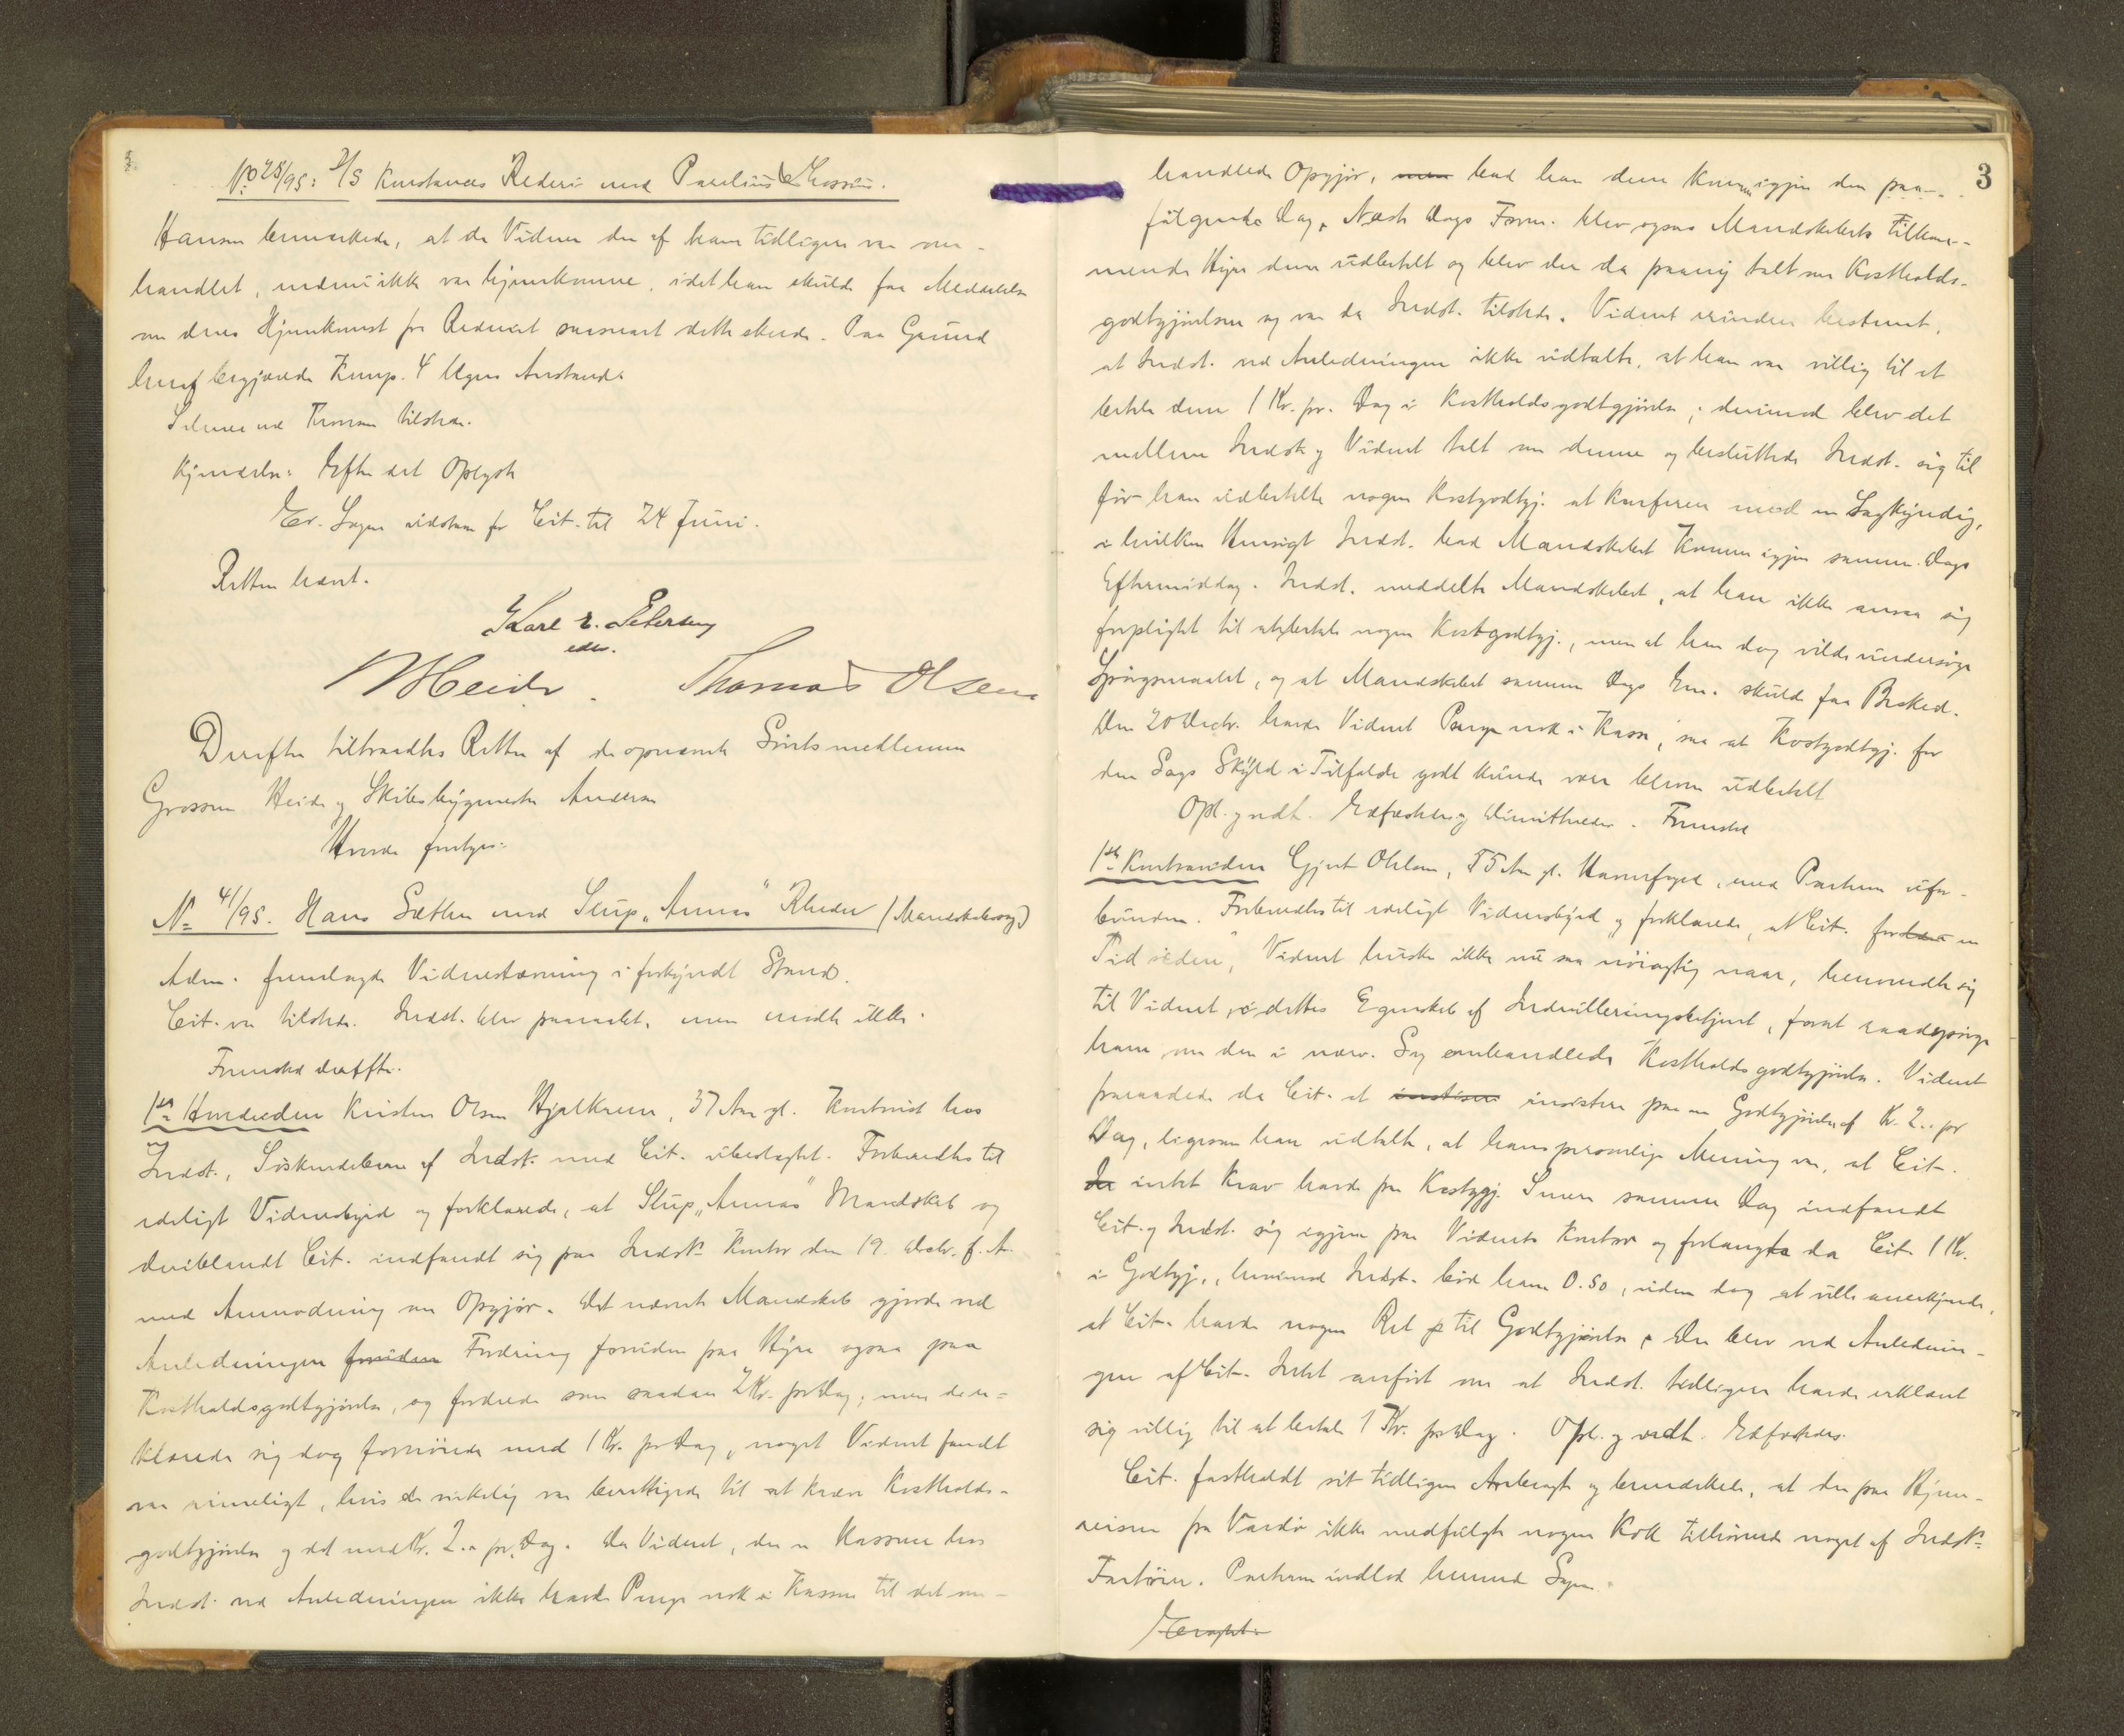 No 25/95: D/S Kunstances Rederi med Paulius
Hansen bemærkede, at de Vidner der af ham tidligere var om-
handlet, endnu ikke var hjemkomne, idet han skulde faa Meddelelse
om deres Hjemkomst fra Rederiet saasnart dette skede. Paa Grund
heraf begjærede Komp. 4 Ugers Anstand.
Selmer ved Thomsen tilstede.
Kjendelse: Efter det Oplyste
Er. Sagen udsættes for Cit. til 24 Juni.
Retten hævet.
Karl L. Petersen
edsv.
N Heide. Thomas Olsen
Derefter tiltraadtes Retten af de opnævnte Søretsmedlemmer
Grosserer Heide og Skibsbygmester Andersen
Hvorda foretoges:
No 41/95. Hans Sæther mod Slup „Annas" Rheder (Mandskabssag)
Adm. fremlagde Vidnestævning i forkyndt Stand.
Cit. var tilstede. Indst. blev paaraabt, men mødte ikke.
Fremstod derefter.
1ste Hovedvidne Kristen Olsen Hjelkrem, 37 Aar gl. Kontorist hos
Indst., Søskendebarn af Indst. med Cit. ubeslægtet. Forberedtes til
edeligt Vidnesbyrd og forklarede, at Slup „Annas" Mandskab og
deriblandt Cit. indfandt sig paa Indsts Kontor den 19. Decbr. f. A.
med Anmodning om Opgjør. Det nævnte Mandskab gjorde ved
Anledningen foruden Fordring foruden paa Hyre ogsaa paa
Kostholdsgodtgjørelse, og fordrede som saadan 2 Kr. pr Dag; men der-
klarede sig dog fornøiede med 1 Kr. pr Dag, noget Vidnet fandt
var rimeligt, hvis de virkelig var berettigede til at kræve Kostholds-
godtgjørelse og det med Kr. 2.. pr. Dag. Da Vidnet, der er Kasserer hos
Indst. ved Anledningen ikke havde Penge nok i Kassen til det om-
3
handlede Opgjør, men bad han dem komme igjen den paa-
følgende Dag. Næste Dags Form. blev ogsaa Mandskabets tilkom-
mende Hyre dem udbetalt og blev der da paany talt om Kostholds-
godtgjørelsen og var da Indst. tilstede. Vidnet erindrer bestemt,
at Indst. ved Anledningen ikke udtalte, at han var villig til at
betale dem 1 Kr. pr. Dag i Kostholdsgodtgjørelse; derimod blev det
mellem Indst. og Vidnet talt om denne og besluttede Indst. sig til
før han udbetalte nogen Kostgodtgj. at konferere med en Sagkyndig,
i hvilken Hensigt Indst. bad Mandskabet komme igjen samme Dags
Eftermiddag. Indst. meddelte Mandskabet, at han ikke ansaa sig
forpligtet til at betale nogen Kostgodtgj., men at han dog vilde undersøge
Spørgsmaalet, og at Mandskabet samme Dags Em. skulde faa Besked.
Den 20 Decbr. havde Vidnet Penge nok i Kasse, saa at Kostgodtgj. for
den Sags Skyld i Tilfælde godt kunde være bleven udbetalt
Opl. og vedt. Edfæstedes og dimitteredes. Fremstod
1ste Kontravidne Gjert Ohlsen, 55 Aar gl. Havnefoged, med Parterne ufor-
bunden. Forberedtes til edeligt Vidnesbyrd og forklarede, at Cit. for en
Tid siden, Vidnet husker ikke nu saa nøiagtig naar, henvendte sig
til Vidnet, i dettes Egenskab af Indrulleringsbetjent, forat raadspørge
ham om den i nærv. Sag omhandlede Kostholdsgodtgjørelse. Vidnet
paaraadede da Cit. at insistere paa en Godtgjørelse af Kr. 2.. pr
Dag, ligesom han udtalte, at hans personlige Mening var, at Cit.
intet Krav havde paa Kostgtgj. Senere samme Dag indfandt
Cit. og Indst. sig igjen paa Vidnets Kontor og forlangte da Cit. 1 Kr.
i Godtgj., hvorimod Indst. bød ham 0.50, uden dog at ville anerkjende,
at Cit. havde nogen Ret til Godtgjørelse. Der blev ved Anlednin-
gen af Cit. Intet anført om at Indst. tidligere havde erklæret
sig villig til at betale 1 Kr. pr Dag. Opl. og vedt. Edfæstedes.
Cit. fastholdt sit tidligere Anbragte og bemærkede, at der paa Hjem-
reisen fra Vardø ikke medfulgte nogen Kok tilhørende noget af Indsts
Fartøier. Parterne indlod hermed Sagen.